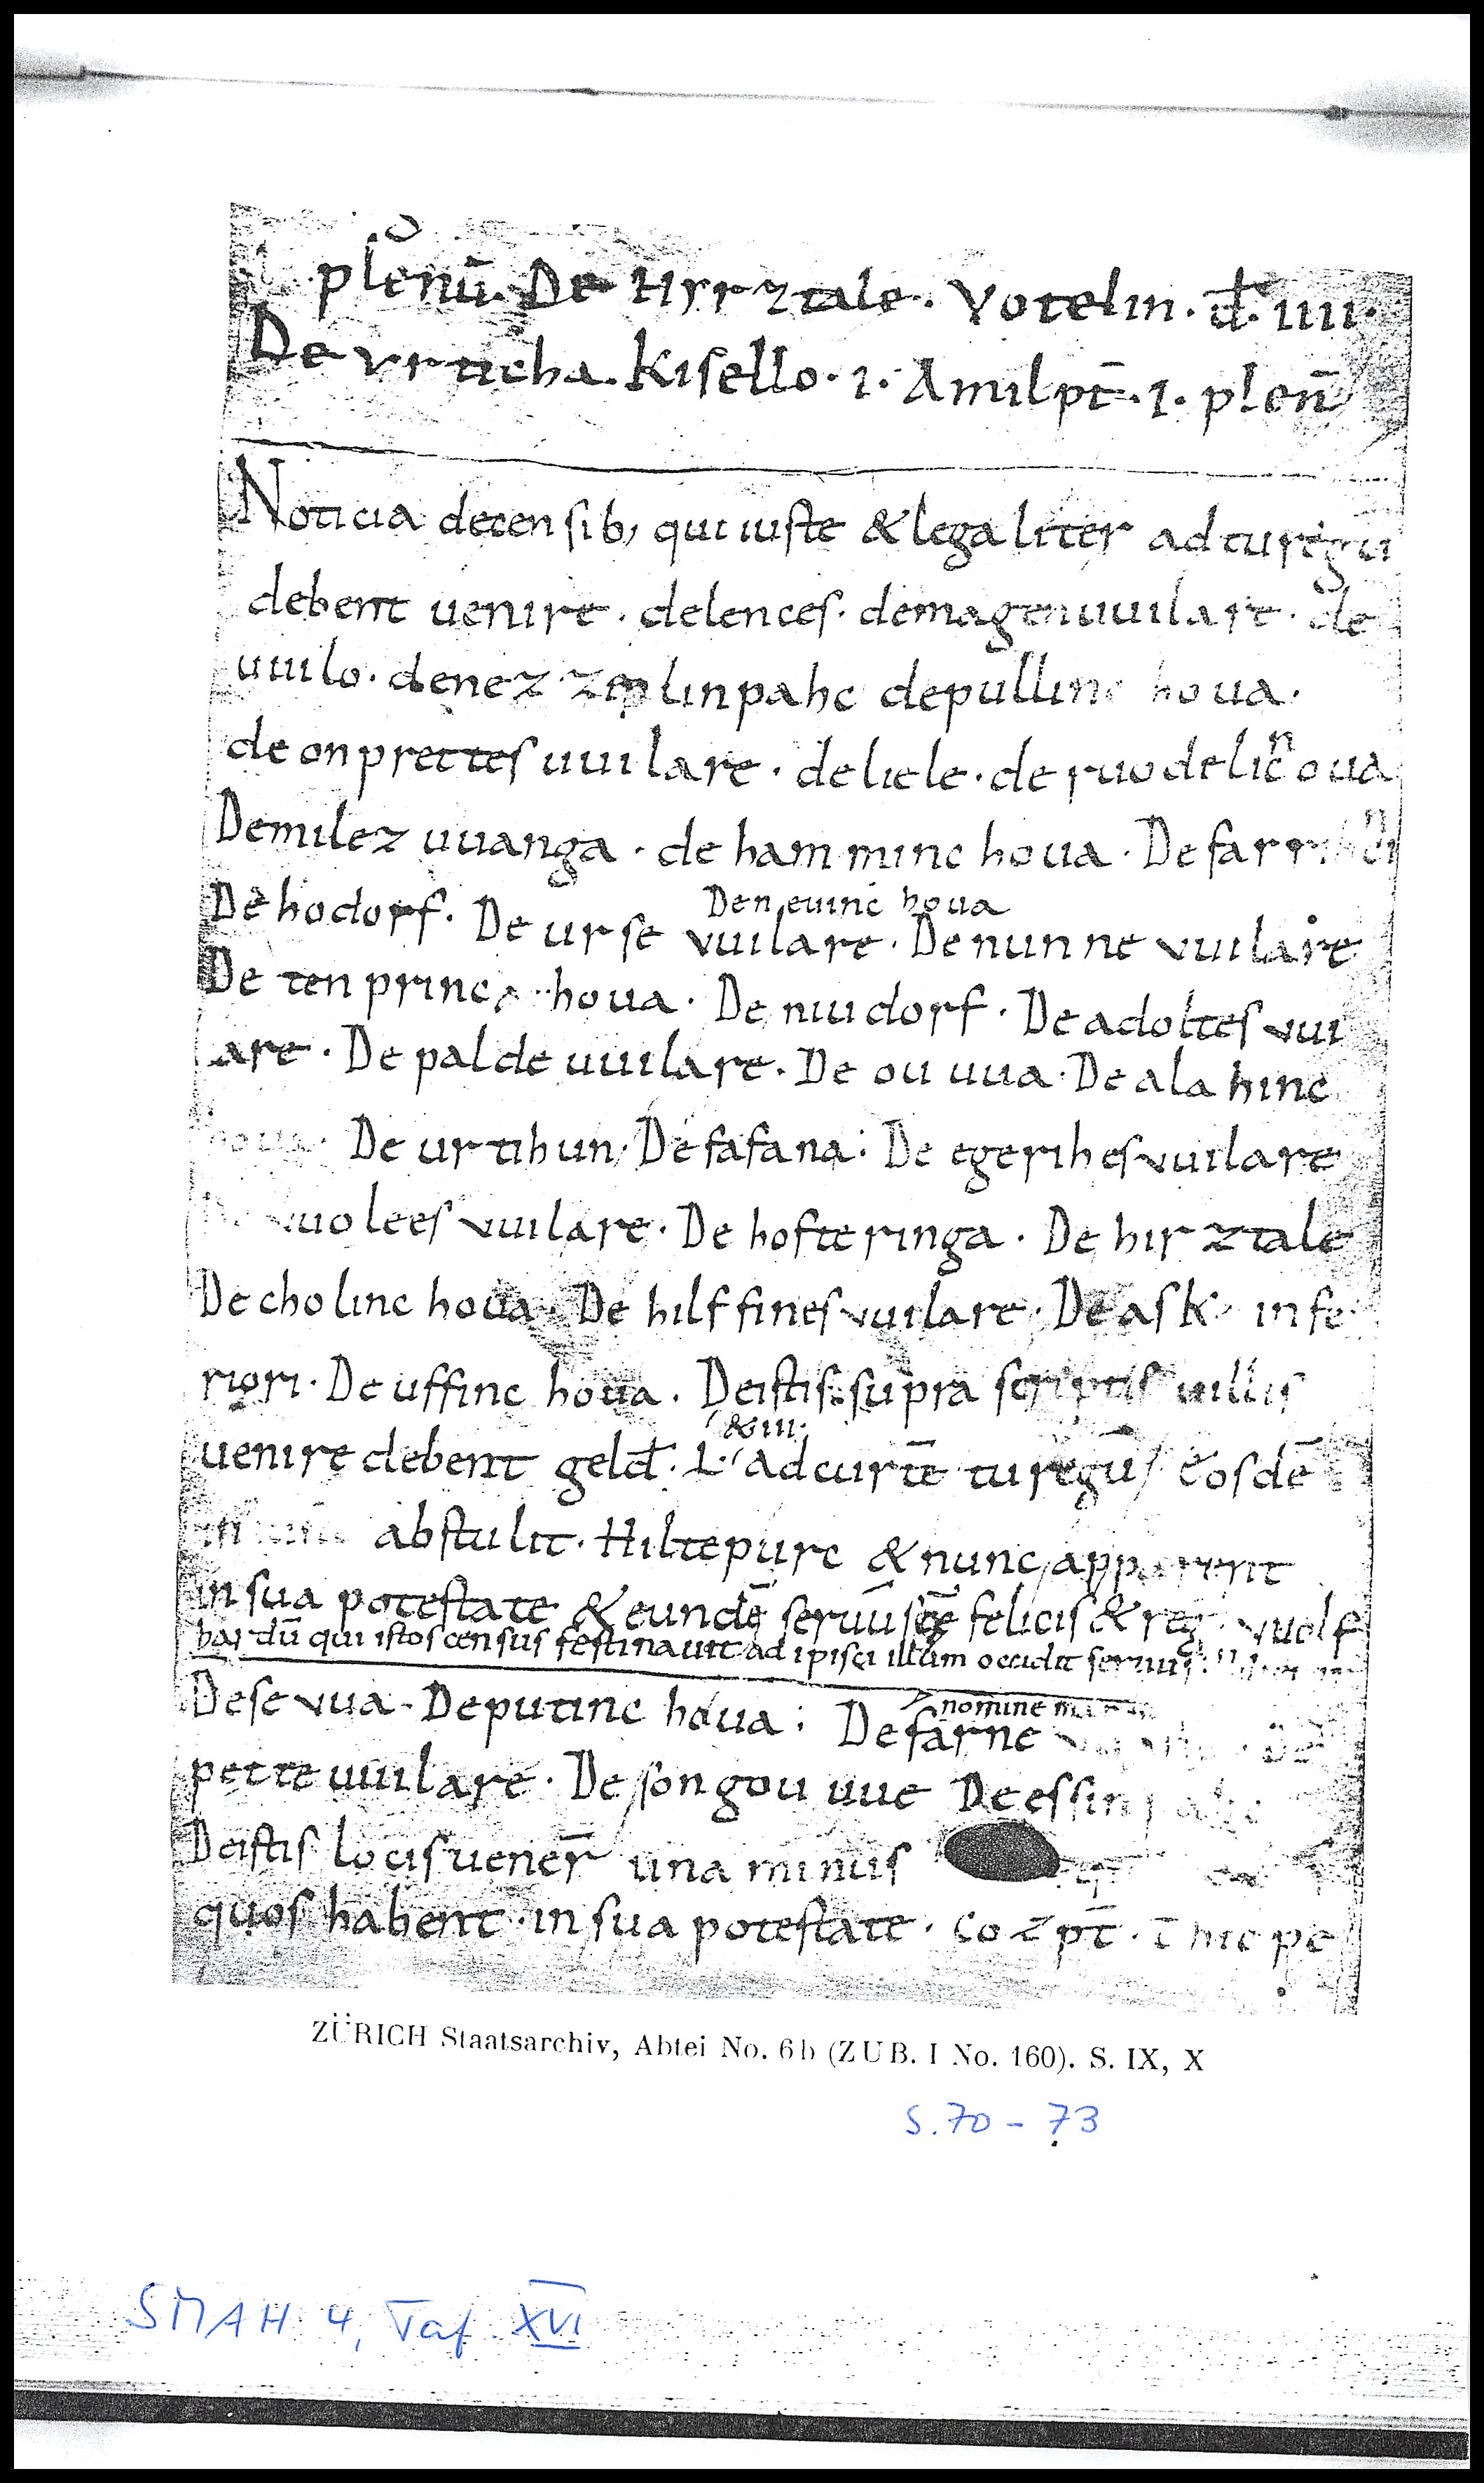 plenū. De Hyrztale. Votelin. đ. iiii.
De urticha. Kisello. i. Amilpt̄. i. plen̄
Noticia decensib; qui iuste & legaliter ad turegū
debent uenire. delences. demagenuuilare. de
uuilo. denezzenlinpahc depullinc houa.
de onprettesuuilare. deliele. de ruodelic͛oua
Demilezuuanga. de hamminc houa. De
De hodorf. De urse vuilare. De nunne vuilare
Deneuinc houa
De tenprinc houa. De niudorf. De adoltes vui
are. De paldeuuilare. De ouuua. De alahinc
houa. De urtihun. De fafana. De egerihesvuilare
uolcesvuilare. De hofteringa. De hirztale
De cholinc houa. De hilffinesvuilare. De ask infe
riori. De uffinc houa. De istis supra scriptis uillis
& iii.
uenire debent gelđ. L. ad curtē turegū eosdē
abstulit. Hiltepurc & nunc apparent
in sua potestate & eundē seruū scē felicis & reg. vuolf
hardū qui istos census festinauit adipisci illum occidit seruus
nomine
De sevua. De putinc houa. De farne
petteuuilare. De songouuue De essin
De istis locis uener̄ una minus
quos habent. in sua potestate. Cozpt̄. hic pe
ZÜRICH Staatsarchiv, Abtei No. 6b (ZUB. I No. 160). S. IX, X
S. 70 - 73
SMAH 4, Taf. XVI